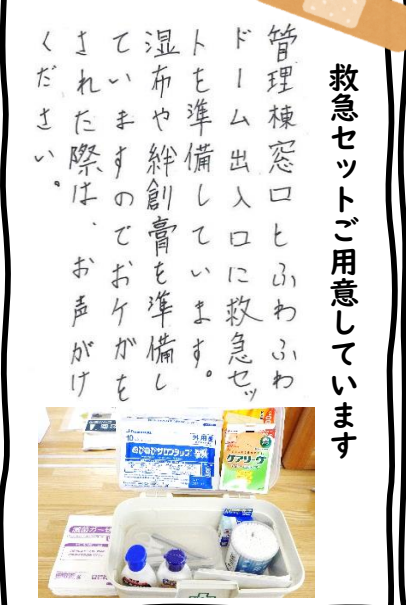 救急セットご用意しています
管理棟窓口とふわふわ
ドーム出入口に救急セッ
トを準備しています。
湿布や絆創膏を準備し
ていますのでおケガを
された際は、お声がけ
ください。
外用薬
のびのびサロンシップ
ケアリーヴ